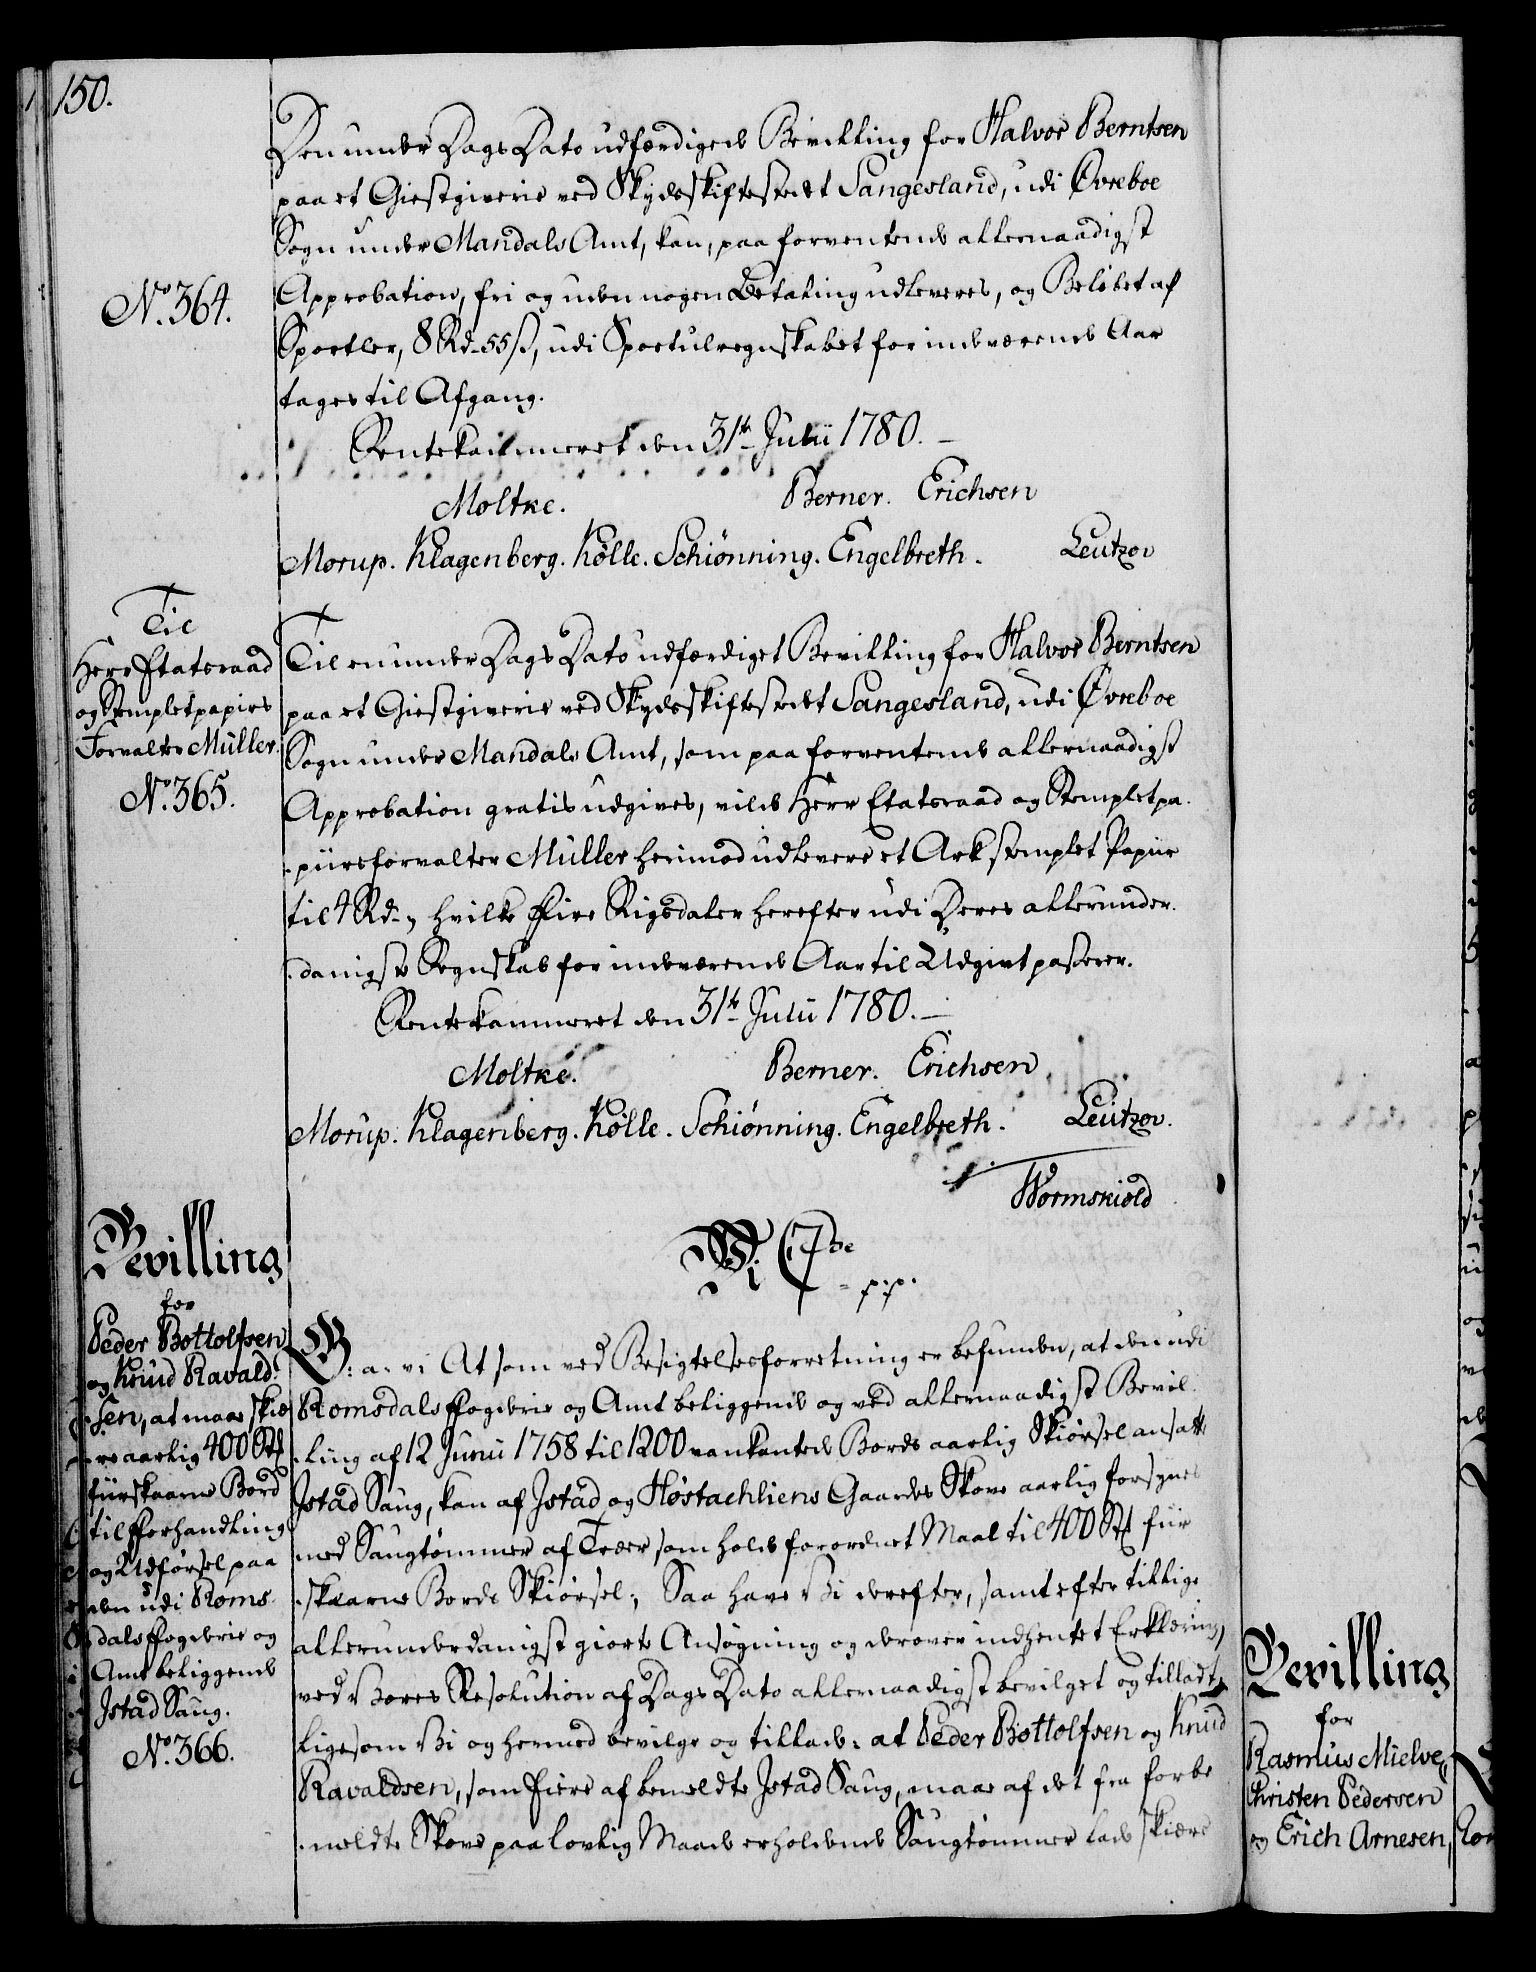 150.
Den under Dags Dato udfærdigede Bevilling for Halvor Berntsen
paa et Giestgiverie ved Skydsskiftestedet Sangesland, udi Øvreboe
Sogn under Mandals Amt, kan, paa forventende allernaadigst
No. 364.
Approbation, fri og uden nogen Betaling udleveres, og Beløbet af
Sportler, 8 Rd. 55 ß, udi Sportulregnskabet for indeværende Aar
tages til Afgang.
Rentekammeret den 31te Julii 1780.
Moltke. Berner. Erichsen
Morup. Klagenberg. Kölle. Schiönning. Engelbreth. Leutzov
Til
Herr Etatsraad
og Stempletpapiirs
Forvalter Müller.
No. 365.
Til en under Dags Dato udfærdiget Bevilling for Halvor Berntsen
paa et Giestgiverie ved Skydsskiftestedet Sangesland, udi Øvreboe
Sogn under Mandals Amt, som paa forventende allernaadigst
Approbation gratis udgives, vilde Herr Etatsraad og Stempletpa-
piirsforvalter Müller herimod udlevere et Ark stemplet Papiir
til 4 Rd., hvilke Fire Rigsdaler herefter udi Deres allerunder-
danigste Regnskab for indeværende Aar til Udgivt passerer.
Rentekammeret den 31te Julii 1780.
Moltke. Berner. Erichsen
Morup. Klagenberg. Kölle. Schiönning. Engelbreth. Leutzov.
Wormskiold
Bevilling
for
Peder Bottolfsen
og Knud Ravald-
sen, at maae skiæ-
re aarlig 400 St
fiirskaarne Bord
til Forhandling
og Udførsel paa
den udi Roms-
dals Fogderie og
Amt beliggende
Istad Saug.
No. 366.
Vi C 7de
p.p.
G: a: v: At som ved Besigtelsesforretning er befunden, at den udi
Romsdals Fogderie og Amt beliggende og ved allernaadigst Bevil-
ling af 12 Junii 1758 til 1200 vankantede Bords aarlig Skiørsel ansatte
Istad Saug, kan af Istad og Høstachliens Gaardes Skove aarlig forsynes
med Saugtømmer af Træer, som holde forordnet Maal til 400 St fiir-
skaarne Bords Skiørsel; Saa have Vi derefter, samt efter tillige
allerunderdanigst giorte Ansøgning og derover indhentet Erklæring,
ved Vores Resolution af Dags Dato allernaadigst bevilget og tilladt,
ligesom Vi og hermed bevilge og tillade: at Peder Bottolfsen og Knud
Ravaldsen, som Eiere af bemeldte Istad Saug, maae af det fra forbe-
meldte Skove paa lovlig Maade erholdende Saugtømmer lade skiære
Bevilling
for
Rasmus Mielve,
Christen Pedersen
og Erich Arnesen,